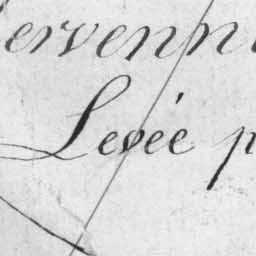 ervenn
Levée p